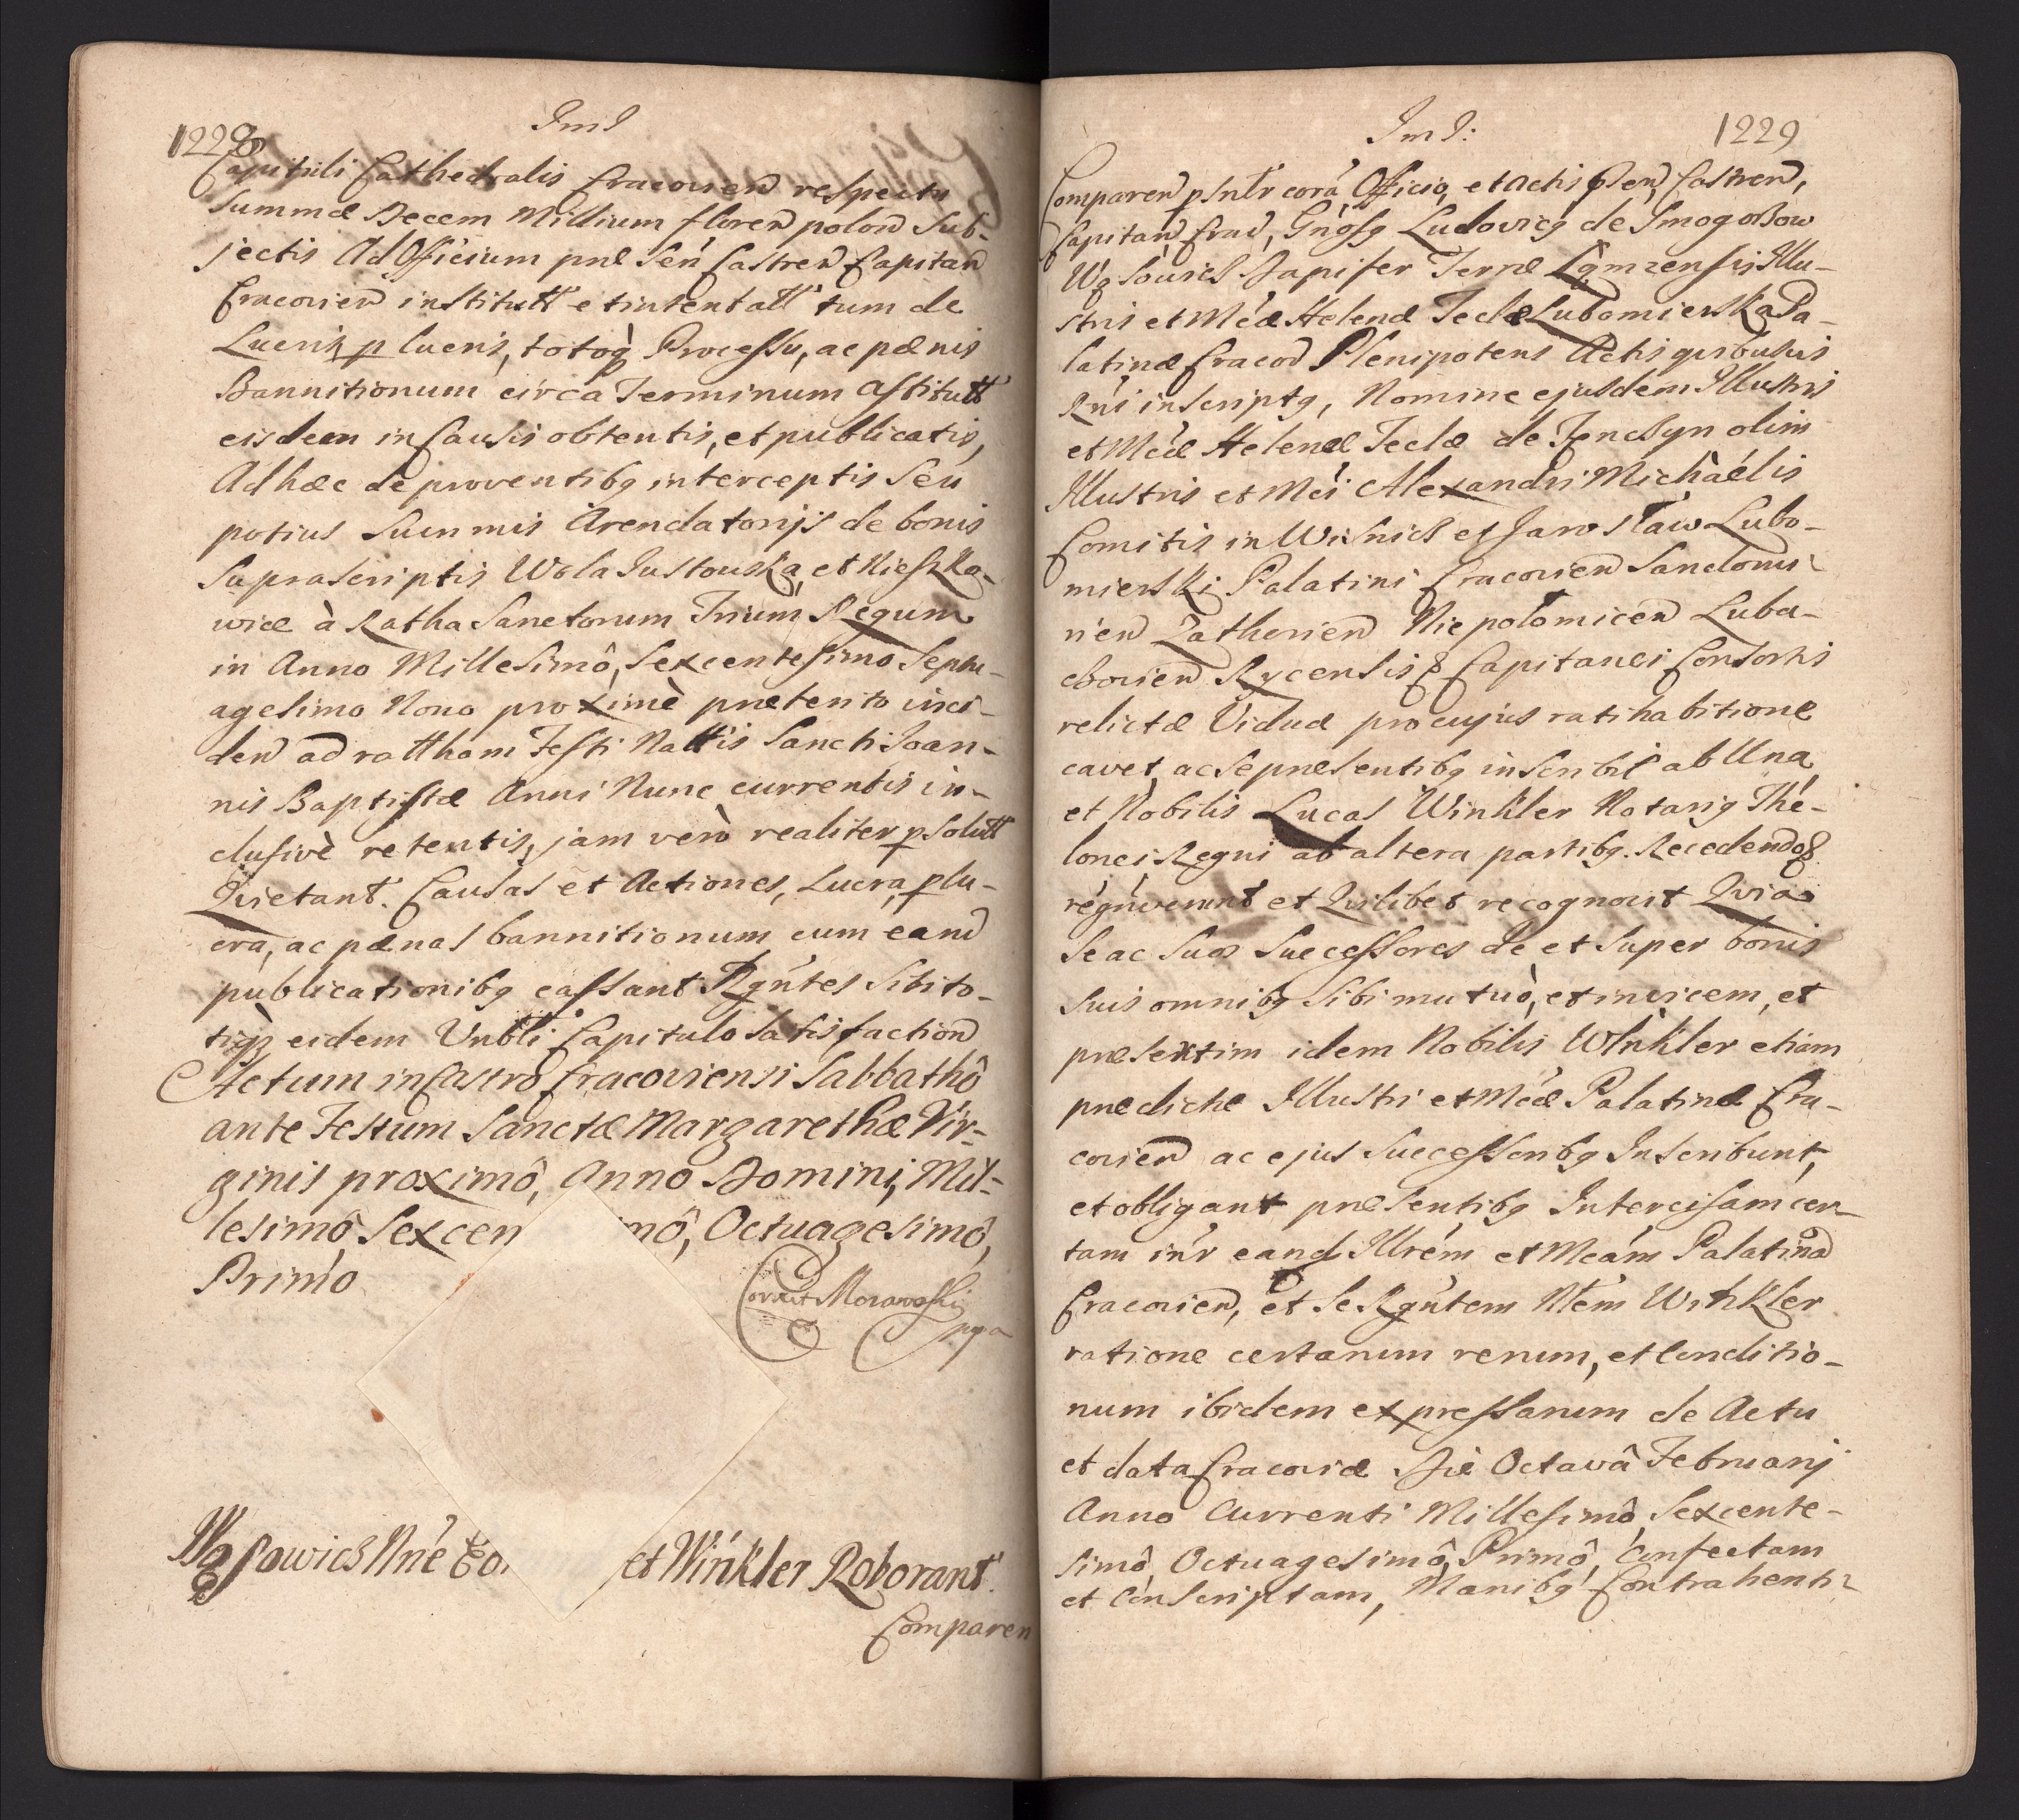 1228
Ind
Capituli Cathedralis Cracovien respectu
Summæ Decem Millium floren polon Sub-
jectis Ad Officium præsen Castren Capitan
Cracovien institutt et intentatt tum de
Lucris p lucris, totoq Processu, ac pænis
Bannitionum circa Terminum Astitutt
eisdem in Causis obtentis, et publicatis,
Ad hæc de proventibq interceptis Seu
potius Summis Arendatorijs de bonis
Suprascriptis Wola Justouska, et Kieszko-
wice à Ratha Sanctorum Trium Regum
in Anno Millesimô, Sexcentesimo Septu-
agesimo Nono proximè præterito inci-
den ad rattham Festi Nattis Sancti Joan-
nis Baptistæ Anni Nunc currentis in-
clusivè retentis, jam verò realiter psolutt
Quietant. Causas et Actiones, Lucra, plu-
cra, ac pænas bannitionum cum eand
publicationibq cassant Rgñtes Sibi to-
tiqz eidem Vnbli Capitulo Satisfaction
Actum in Castro Cracoviensi Sabbathô
ante Festum Sanctæ Margarethæ Vir-
ginis proximô, Anno Domini, Mil-
lesimô Sexcen mô, Octuagesimô,
Primo
Correxit Morawski
mpa
Wąsowicz Nñe et Winkler Roborant.
Comparen
Ind:
1229
Comparen psntr corã Officio, et Actis psen, Castren,
Capitan Crac, Gñosq Ludovicq de Smogorzow
Wąsowicz Dapifer Terræ Łomzensis Illu-
stris et Mcæ Helenæ Teclæ Lubomierska Pa-
latinæ Cracov Plenipotens Actis quibusvis
Rñi inscriptq, Nomine ejusdem Illustris
et Mcæ Helenæ Teclæ de Tenczyn olim
Illustris et Mci Alexandri Michaélis
Comitis in Wisnicz et Jarosław Lubo-
mierski Palatini Cracovien Sandomi-
rien Zathorien Niepołomicen Luba-
czovien Rycensis & Capitanei Consortis
relictæ Viduæ pro cujus ratihabitione
cavet, ac se præsentibq inscribit ab Una
et Nobilis Lucas Winkler Notariq The-
lonei Regni ab altera partibq. Recedendo &
régñverunt et Quilibet recognovit Quia
Se ac Suos Successores de et Super bonis
Suis omnibq Sibi mutuò, et invicem, et
præsertim idem Nobilis Winkler etiam
prædictæ Illustri et Mcæ Palatinæ Cra-
covien ac ejus Successoribq Inscribunt,
et obligant præsentibq Intercisam cer-
tam inr eand Illrém et Mcám Palatinã
Cracovien, et Se Rgñtem Nlém Winkler
ratione certarum rerum, et Conditio-
num ibidem expressarum de Actu
et data Cracoviæ Die Octavâ Februarij
Anno Currenti Millesimô, Sexcente-
simô, Octuagesimô, Primô, Confectam
et Conscriptam, Manibq Contrahenti-